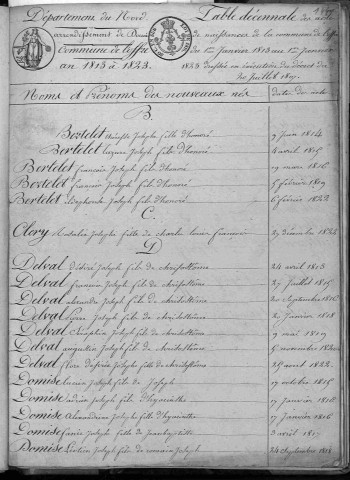 Département du Nord
arrondissement de
Commune de
an 1813 à 1823.
Table décennale des actes
de naissances de la commune de
du 1er Janvier 1813 au 1er Janvier
1823 dressée en exécution du décret du
20 Juillet 1807.
Noms et Prénoms des nouveaux nés
dates des actes
B.
Bertelet Joseph fille d'honoré 7 juin 1814
Bertelet Joseph fils d'honoré 4 avril 1815
Bertelet françois Joseph fils d'honoré 19 mars 1816
Bertelet françois Joseph fils d'honoré 5 février 1819
Bertelet Joseph fils d'honoré 6 février 1822
C.
Clery Natalie Joseph fille de charles louis 29 décembre 1822
D
Delval désiré Joseph fils de 24 avril 1813
Delval françois Joseph fils de 25 juillet 1815
Delval alexandre Joseph fils de 20 septembre 1816
Delval Joseph fils de 20 janvier 1818
Delval Séraphin Joseph fils de 9 mai 1819
Delval augustin Joseph fils de 5 novembre 1820
Delval Joseph fils de avril 1822
Domise Joseph fils de Joseph 19 octobre 1815
Domise Joseph fils d'hyacinthe 17 janvier 1814
Domise Alexandrine Joseph fille d'hyacinthe 17 janvier 1816
Domise Joseph fille de Jean baptiste 3 avril 1817
Domise Joseph fils de romain Joseph 24 septembre 1818